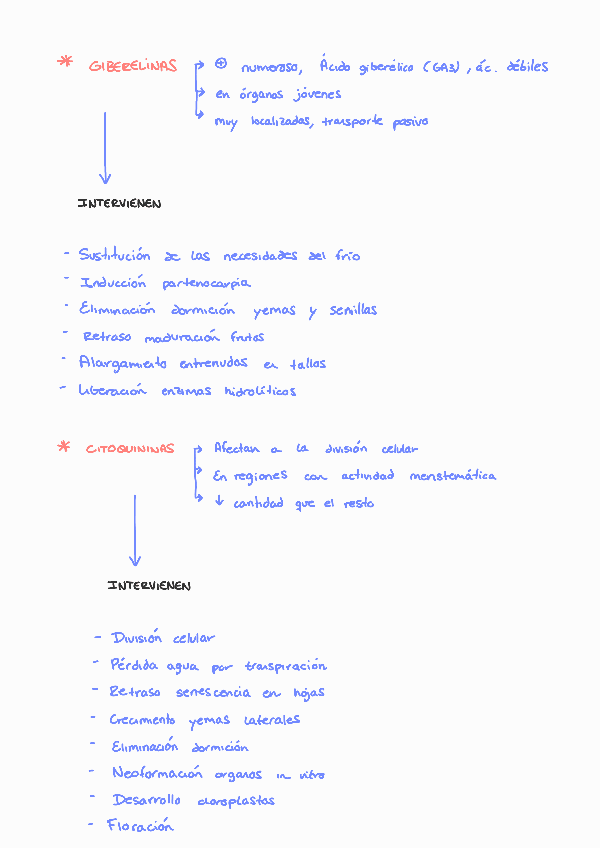 * GIBERELINAS → ⊕ numeroso, Ácido giberélico (GA3), ác. débiles
→ en órganos jóvenes
→ muy localizadas, transporte pasivo
INTERVIENEN
- Sustitución de las necesidades del frío
- Inducción partenocarpia
- Eliminación dormición yemas y semillas
- Retraso maduración frutos
- Alargamiento entrenudos en tallos
- Liberación enzimas hidrolíticos
* CITOQUININAS → Afectan a la división celular
→ En regiones con actividad meristemática
→ ↓ cantidad que el resto
INTERVIENEN
- División celular
- Pérdida agua por transpiración
- Retraso senescencia en hojas
- Crecimiento yemas laterales
- Eliminación dormición
- Neoformación órganos in vitro
- Desarrollo cloroplastos
- Floración